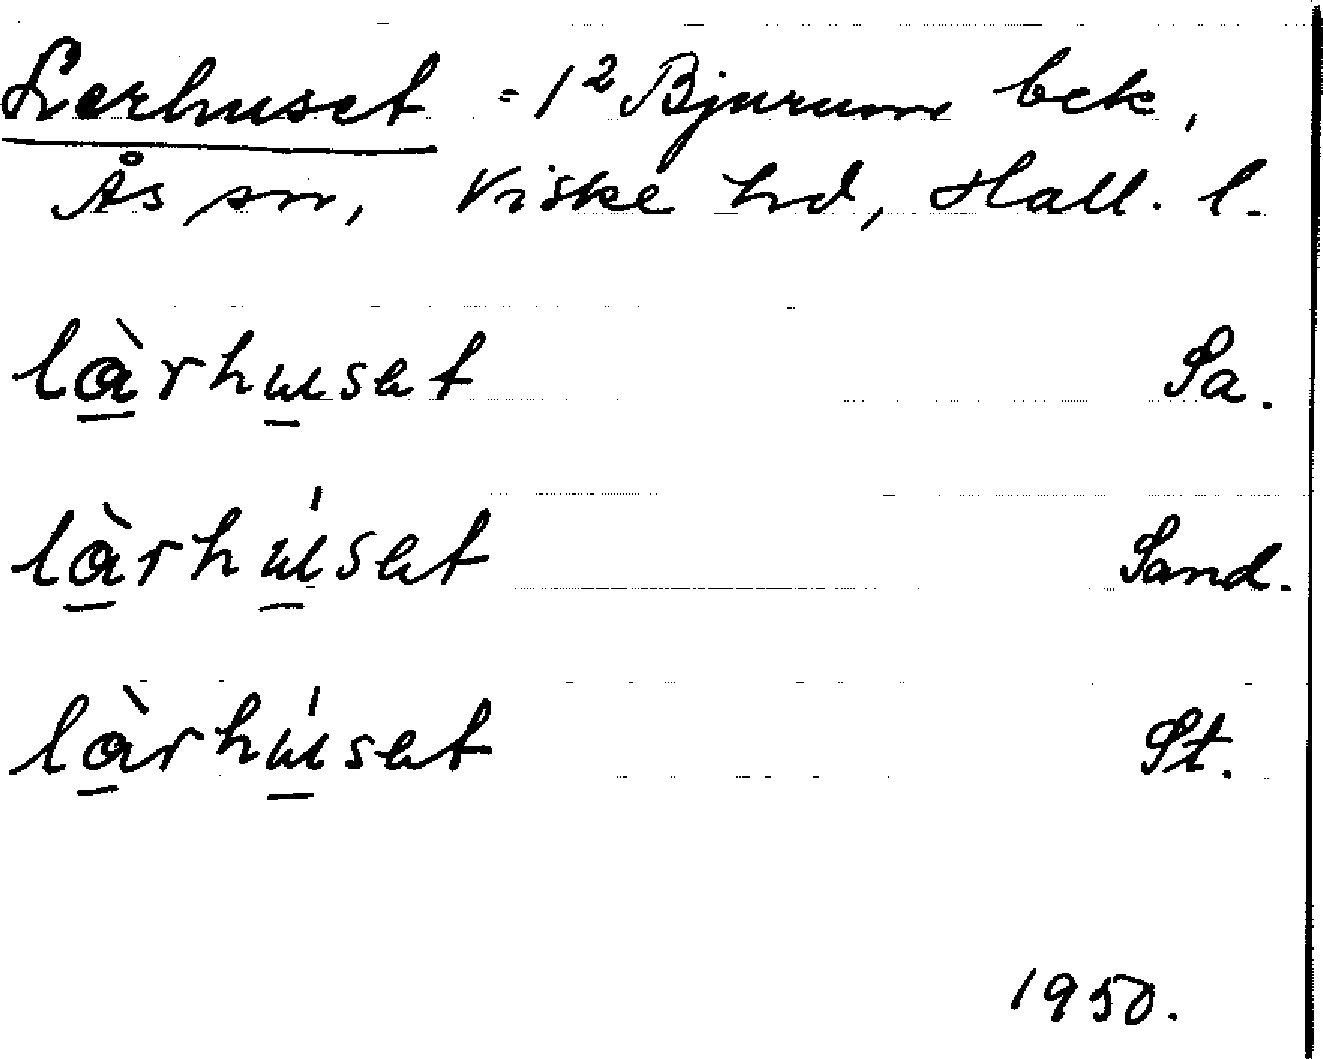 Lerhuset = 1² Bjurum bek,
Ås sn, Viske hrd, Hall. l.
là̲rhu̲sat Sa.
là̲rhú̲sat Sand.
là̲rhú̲sat St.
1950.